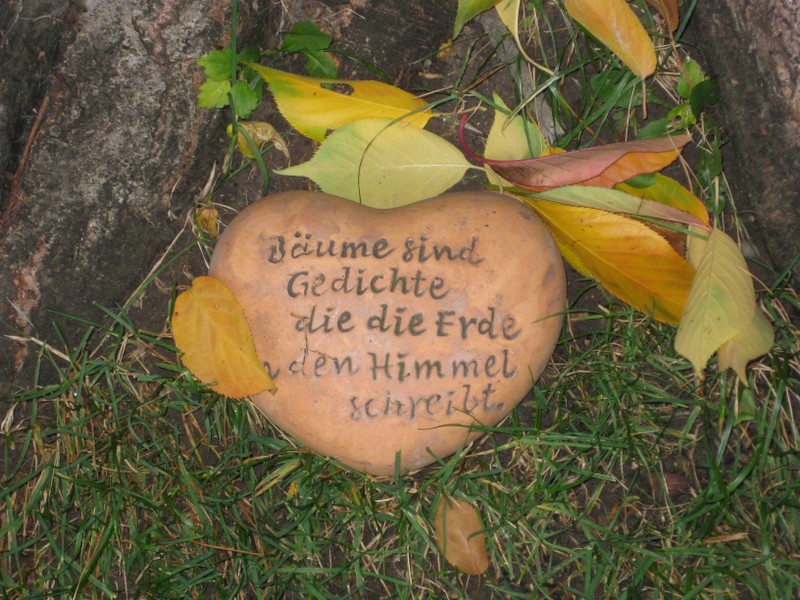 Bäume sind
Gedichte
die die Erde
den Himmel
schreibt.